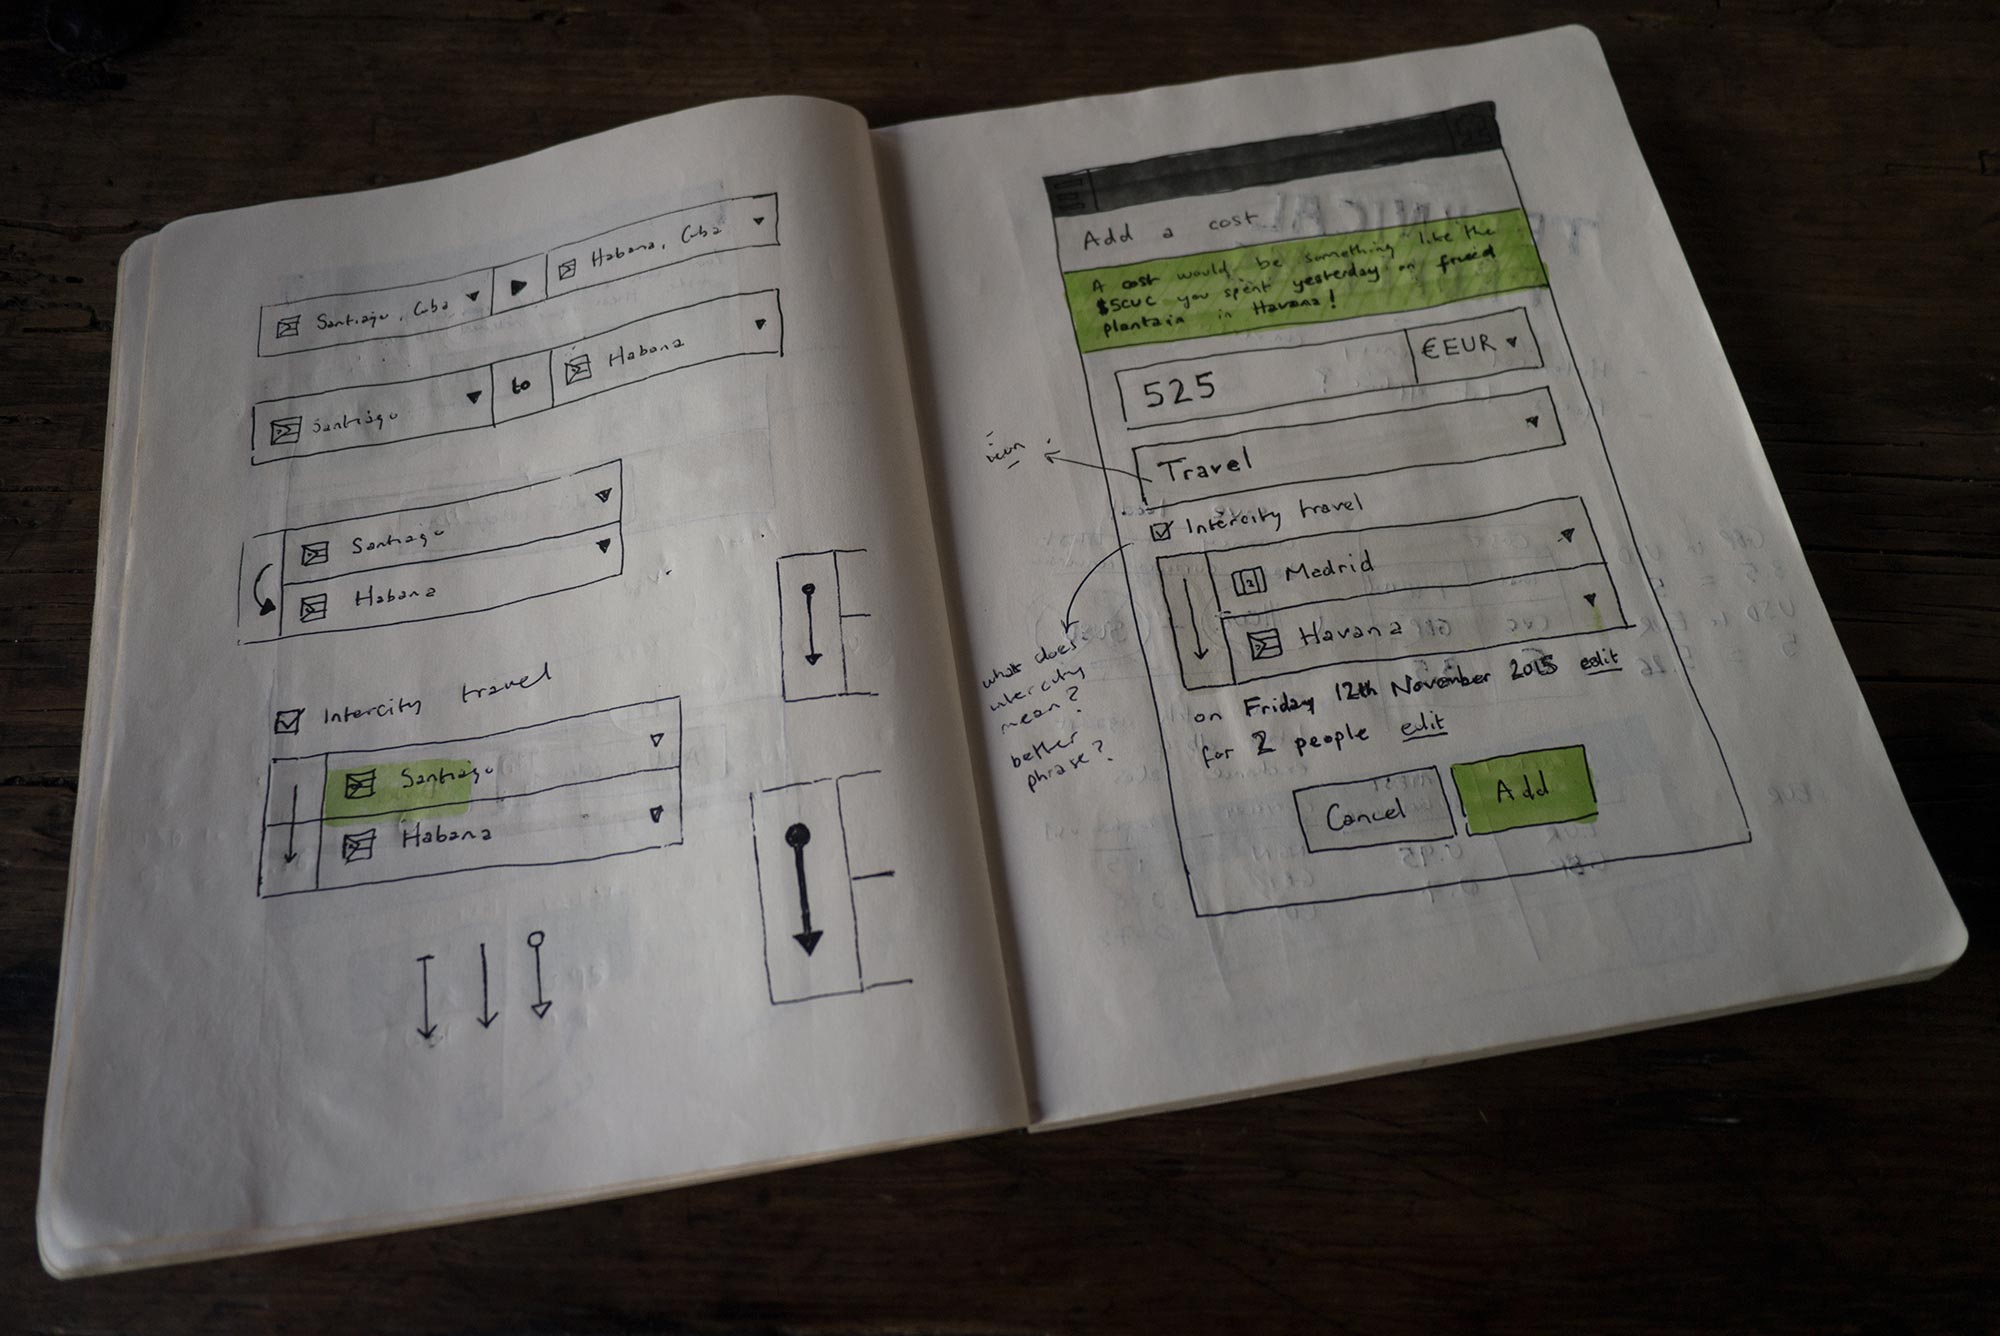 Santiago, Cuba
Habana, Cuba
Santiago
to
Habana
Santiago
Habana
Intercity travel
Santiago
Habana
Add a cost
A cost would be something like the
$5CUC you spent yesterday on
plantain in Havana!
525
€EUR
icon
Travel
Intercity travel
Madrid
Havana
what does
intercity
mean?
better
phrase?
on Friday 12th November 2015 edit
for 2 people edit
Cancel
Add